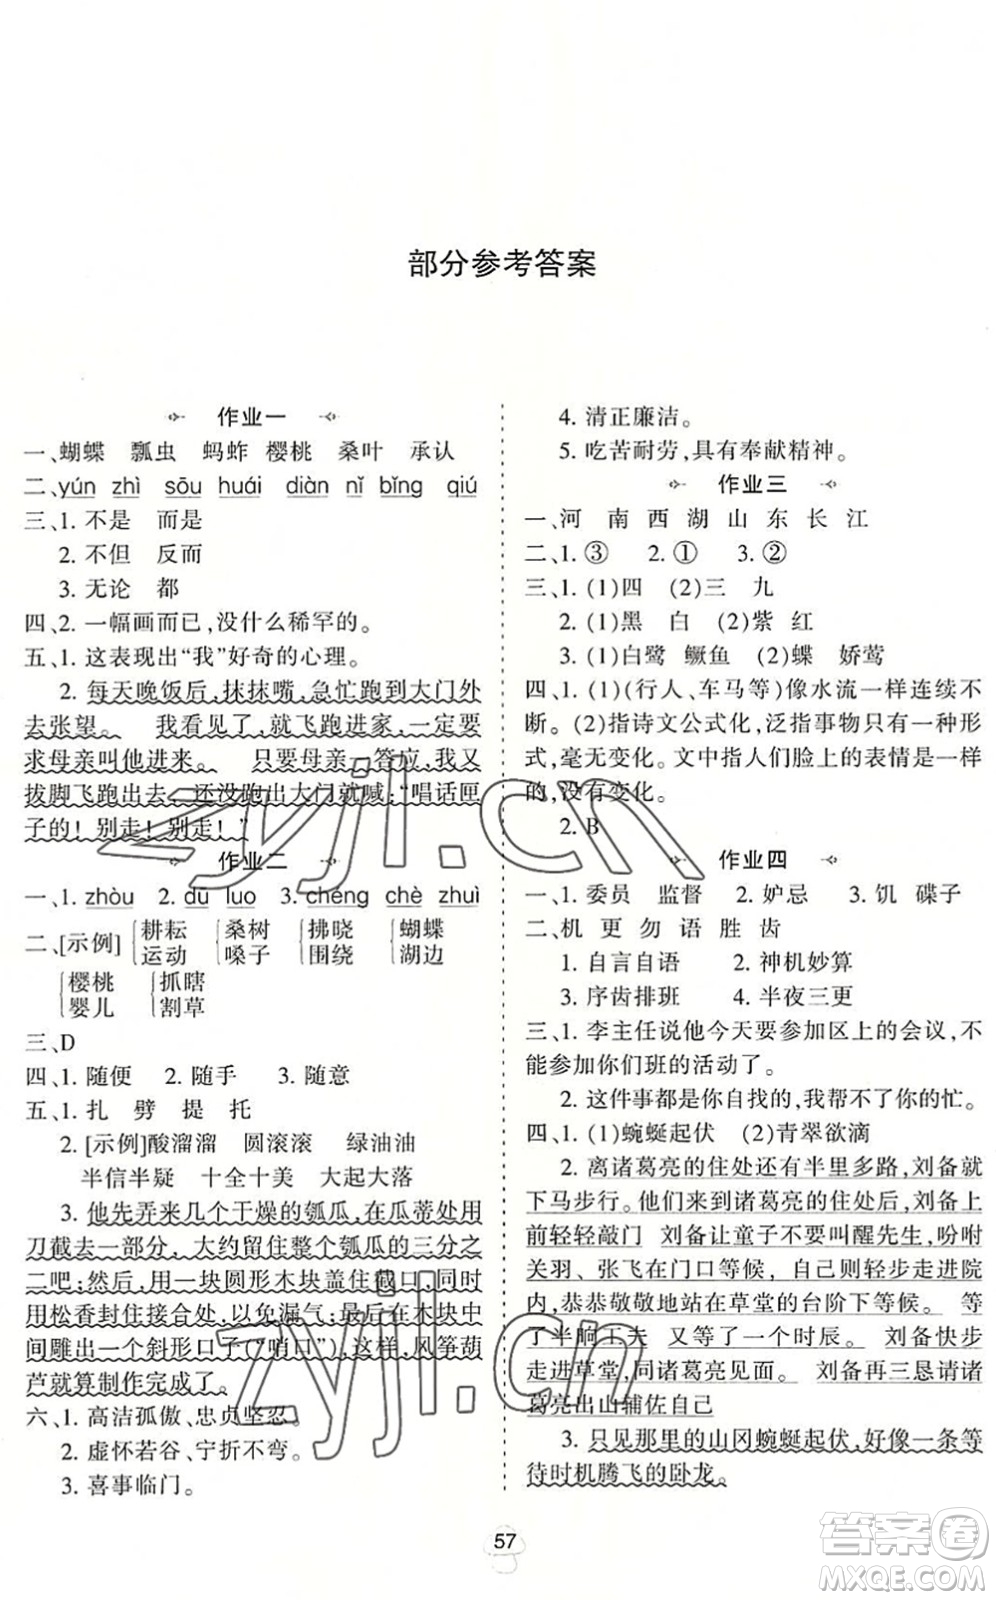 部分参考答案
作业一
一、蝴蝶 瓢虫 蚂蚱 樱桃 桑叶 承认
二、yún zhì sōu huái diàn nǐ bǐng qiú
三、1. 不是 而是
2. 不但 反而
3. 无论 都
四、2. 一幅画而已,没什么稀罕的。
五、1. 这表现出“我”好奇的心理。
2. 每天晚饭后,抹抹嘴,急忙跑到大门外
去张望。 我看见了,就飞跑进家,一定要
求母亲叫他进来。 只要母亲一答应,我又
拔脚飞跑出去,还没跑出大门就喊:“唱话匣
子的!别走!别走!”
作业二
一、1. zhòu 2. dū luo 3. chēng chè zhuì
二、[示例] 耕耘 桑树 拂晓 蝴蝶
运动 嗓子 围绕 湖边
樱桃 抓瞎
婴儿 割草
三、D
四、1. 随便 2. 随手 3. 随意
五、1. 扎 劈 提 托
2. [示例]酸溜溜 圆滚滚 绿油油
半信半疑 十全十美 大起大落
3. 他先弄来几个干燥的瓠瓜,在瓜蒂处用
刀截去一部分,大约留住整个瓠瓜的三分之
二吧;然后,用一块圆形木块盖住截口,
用松香封住接合处,以免漏气;最后,在木块中
间雕出一个斜形口子(“哨口”),这样,风筝葫
芦就算制作完成了。
六、1. 高洁孤傲、忠贞坚忍。
2. 虚怀若谷、宁折不弯。
3. 喜事临门。
4. 清正廉洁。
5. 吃苦耐劳,具有奉献精神。
作业三
一、河 南 西 湖 山 东 长 江
二、1. ③ 2. ① 3. ②
三、1. (1)四 (2)三 九
2. (1)黑 白 (2)紫 红
3. (1)白鹭 鳜鱼 (2)蝶 娇莺
四、1. (1)(行人、车马等)像水流一样连续不
断。(2)指诗文公式化,泛指事物只有一种形
式,毫无变化。文中指人们脸上的表情是一样
的,没有变化。
2. B
作业四
一、1. 委员 监督 2. 妒忌 3. 饥 碟子
二、机 更 勿 语 胜 齿
1. 自言自语 2. 神机妙算
3. 序齿排班 4. 半夜三更
三、1. 李主任说他今天要参加区上的会议,不
能参加你们班的活动了。
2. 这件事都是你自找的,我帮不了你的忙。
四、1. (1)蜿蜒起伏 (2)青翠欲滴
2. 离诸葛亮的住处还有半里多路,刘备就
下马步行。他们来到诸葛亮的住处后,刘备上
前轻轻敲门 刘备让童子不要叫醒先生,吩咐
关羽、张飞在门口等候,自己则轻步走进院
内,恭恭敬敬地站在草堂的台阶下等候。 等
了半晌工夫 又等了一个时辰。 刘备快步
走进草堂,同诸葛亮见面。 刘备再三恳请诸
葛亮出山辅佐自己
3. 只见那里的山冈蜿蜒起伏,好像一条等
待时机腾飞的卧龙。
57
zyjl.cn
zyjl.cn
答案圈
MXQE.COM